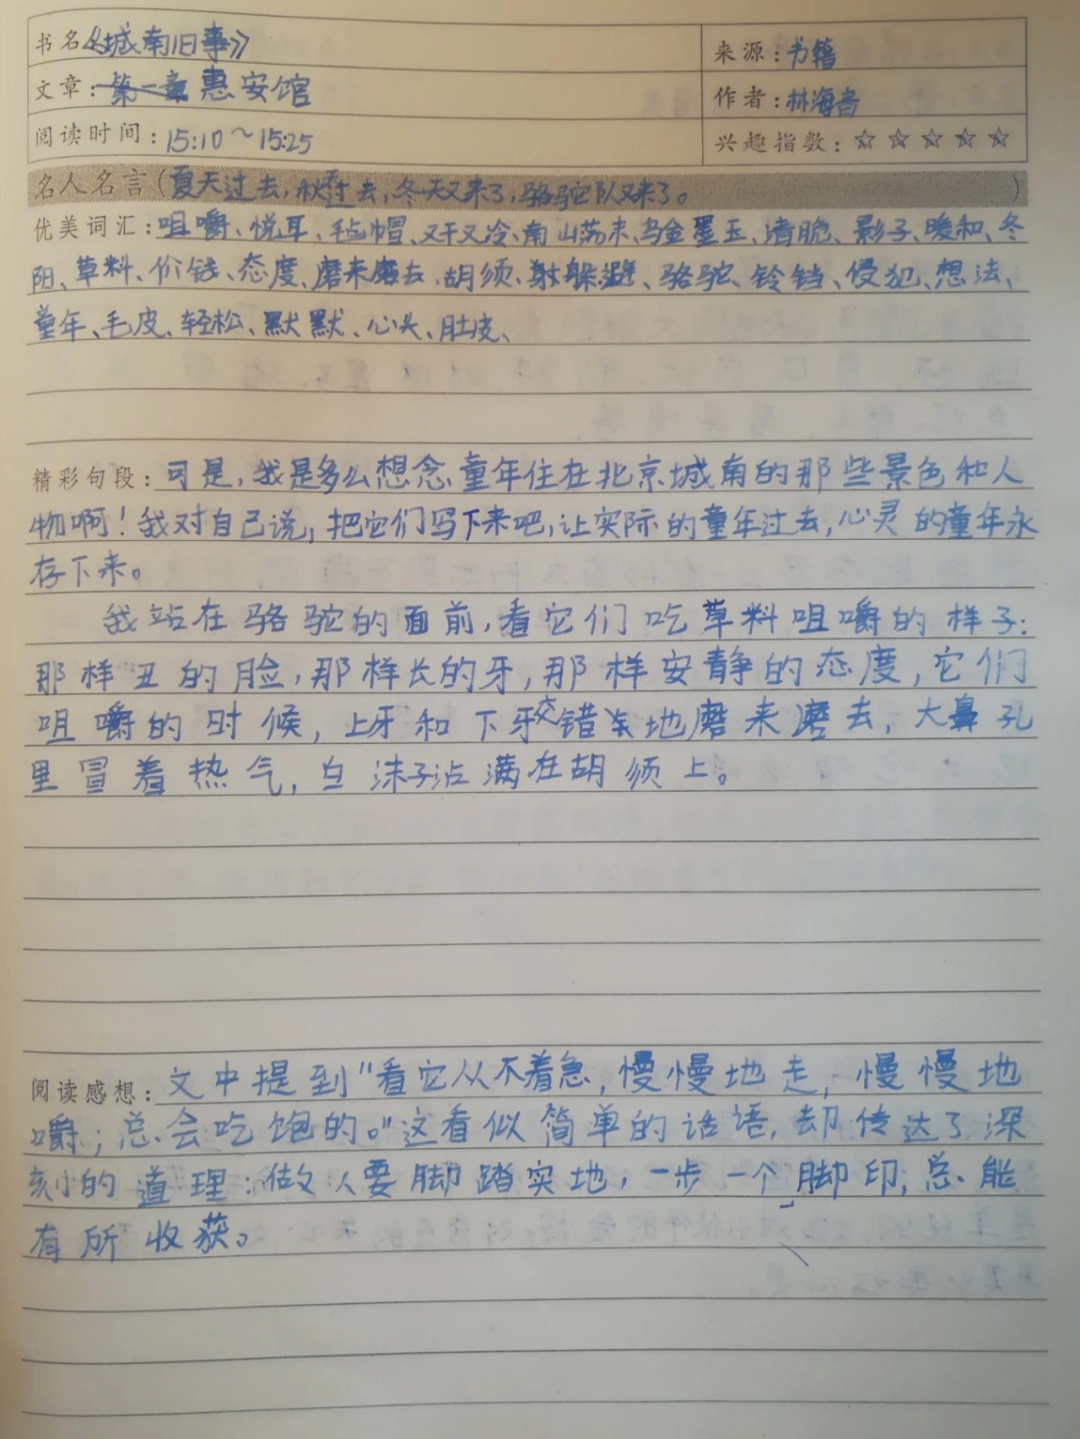 书名《城南旧事》 来源:书籍
文章:第一章 惠安馆 作者:林海音
阅读时间:15:10～15:25 兴趣指数:☆☆☆☆☆
名人名言(夏天过去,秋天过去,冬天又来了,骆驼队又来了。)
优美词汇:咀嚼、悦耳、毡帽、又干又冷、南山荡末、乌金墨玉、清脆、影子、暖和、冬
阳、草料、价钱、态度、磨来磨去、胡须、躲避、骆驼、铃铛、侵犯、想法、
童年、毛皮、轻松、默默、心头、肚皮、
精彩句段:可是,我是多么想念童年住在北京城南的那些景色和人
物啊!我对自己说,把它们写下来吧,让实际的童年过去,心灵的童年永
存下来。
我站在骆驼的面前,看它们吃草料咀嚼的样子:
那样丑的脸,那样长的牙,那样安静的态度,它们
咀嚼的时候,上牙和下牙交错地磨来磨去,大鼻孔
里冒着热气,白沫子沾满在胡须上。
阅读感想:文中提到"看它从不着急,慢慢地走,慢慢地
嚼;总会吃饱的。"这看似简单的话语,却传达了深
刻的道理:做人要脚踏实地,一步一个脚印;总能
有所收获。